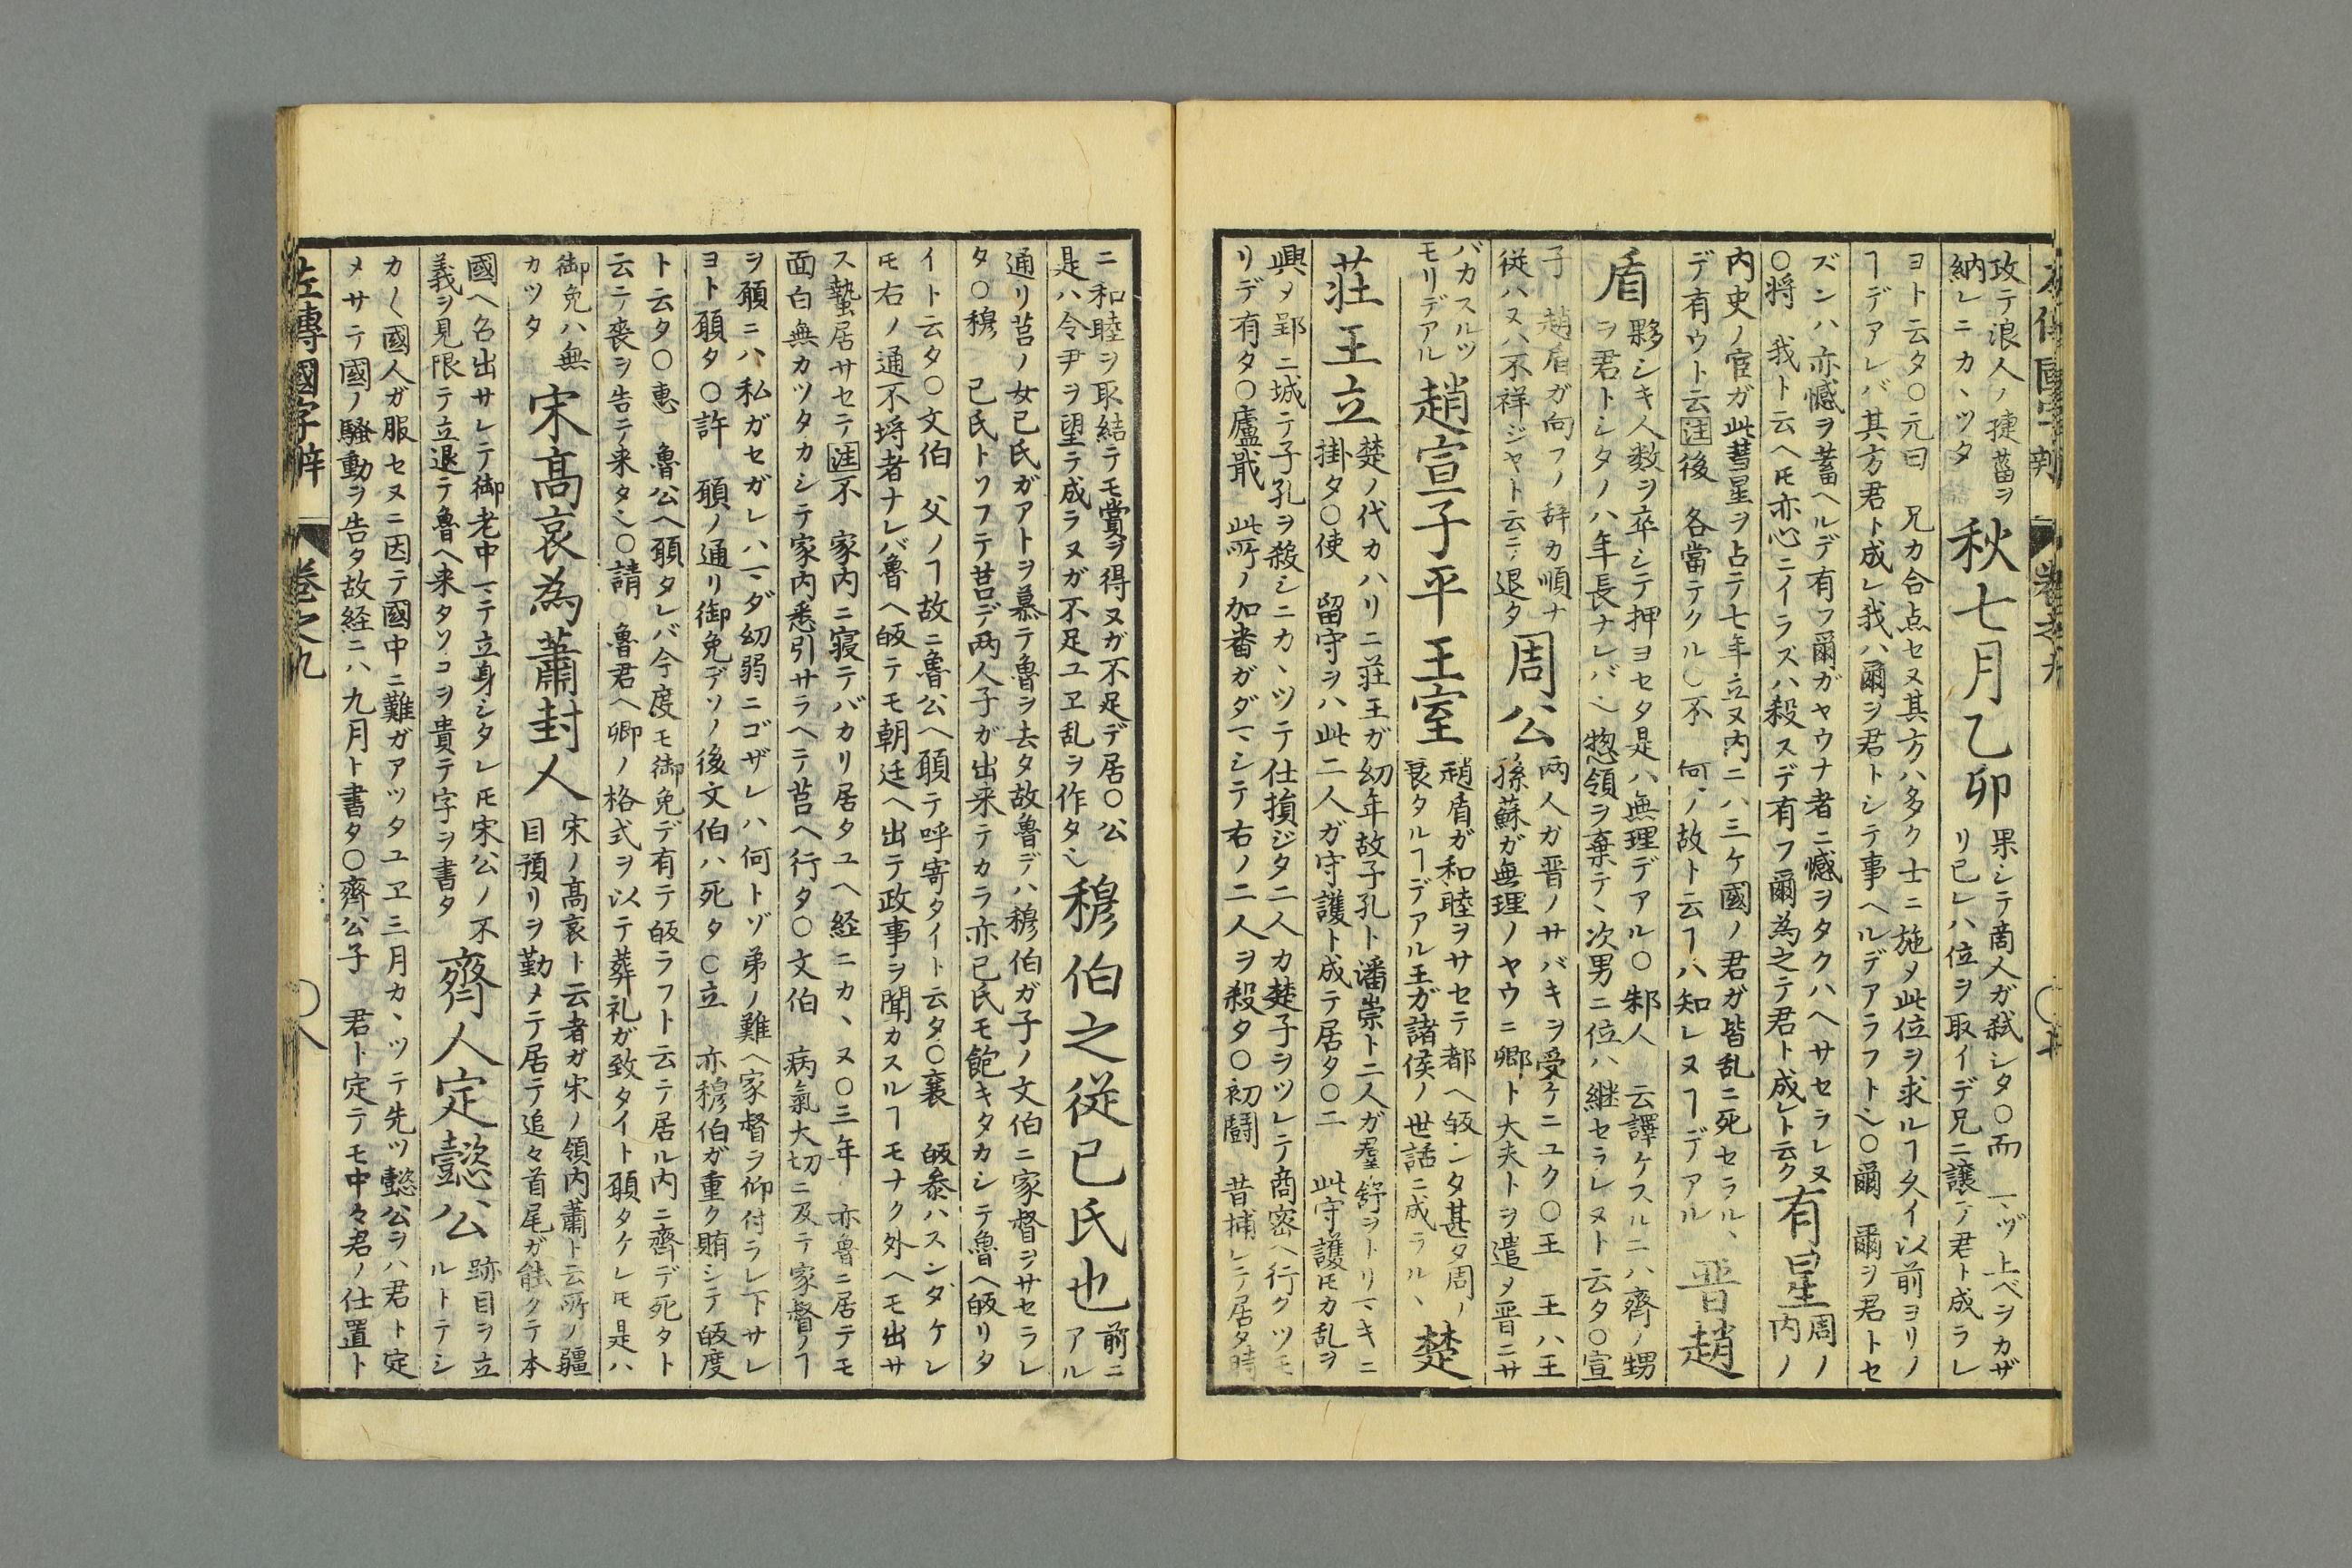 攻テ浪人ノ捷菑ヲ
納レニカヽツタ
秋七月乙卯
果シテ商人ガ弑シタ〇而　マヅ上ベヲカザ
リ已レハ位ヲ取イデ兄ニ譲テ君ト成ラレ
ヨト云タ〇元曰　兄カ合点セヌ其方ハ多ク士ニ施メ此位ヲ求ルヿ久イ以前ヨリノ
ヿデアレバ其方君ト成レ我ハ爾ヲ君トシテ事ヘルデアラフト〻〇爾　爾ヲ君トセ
ズンハ亦憾ヲ蓄ヘルデ有フ爾ガヤウナ者ニ憾ヲタクハヘサセラレヌ
〇将　我ト云ヘ𪜈亦心ニイラズハ殺スデ有フ爾為之テ君ト成レト云ク
有星
周ノ
内ノ
内史ノ官ガ此彗星ヲ占テ七年立又内ニハ三ケ國ノ君ガ皆乱ニ死セラルヽ
デ有ウト云注後　各當テクル〇不　何ノ故ト云ヿハ知レヌヿデアル
晋趙
盾
夥シキ人数ヲ卒シテ押ヨセタ是ハ無理デアル〇邾人　云譯ケスルニハ齊ノ甥
ヲ君トシタノハ年長ナレバ〻惣領ヲ棄テ、次男ニ位ハ継セラレヌト云タ〇宣
子　趙盾ガ向フノ辞カ順ナ
従ハヌハ不祥ジヤト云テ退タ
周公
兩人ガ晋ノサバキヲ受ケニユク〇王　王ハ王
孫蘇ガ無理ノヤウニ卿ト大夫トヲ遣メ晋ニサ
バカスルツ
モリデアル
趙宣子平王室
趙盾ガ和睦ヲサセテ都ヘ皈シタ甚タ周ノ
衰タルヿデアル王ガ諸侯ノ世話ニ成ラルヽ
楚
荘王立
楚ノ代カハリニ荘王ガ幼年故子孔ト潘崇ト二人ガ羣舒ヲトリマキニ
掛タ〇使　留守ヲハ此二人ガ守護ト成テ居タ〇二　此守護𪜈カ乱ヲ
興メ郢ニ城テ子孔ヲ殺シニカヽツテ仕損ジタ二人カ楚子ヲツレテ商密ヘ行クツモ
リデ有タ〇廬戢　此所ノ加番ガダマシテ右ノ二人ヲ殺タ〇初鬪　昔捕レテ居タ時
ニ和睦ヲ取結テモ賞ヲ得ヌガ不足デ居〇公
是ハ令尹ヲ望テ成ラヌガ不足ユヱ乱ヲ作タ〻
穆伯之従已氏也
前ニ
アル
通リ莒ノ女已氏ガアトヲ慕テ魯ヲ去タ故魯デハ穆伯ガ子ノ文伯ニ家督ヲサセラレ
タ〇穆　已氏トツフテ莒デ両人子ガ出来テカラ亦已氏モ飽キタカシテ魯ヘ皈リタ
イト云タ〇文伯　父ノヿ故ニ魯公ヘ願テ呼寄タイト云タ〇襄　皈参ハスンダケレ
𪜈右ノ通不埒者ナレバ魯ヘ皈テモ朝廷ヘ出テ政事ヲ聞カスルヿモナク外ヘモ出サ
ス蟄居サセテ注不　家内ニ寝テバカリ居タユヘ経ニカヽヌ〇三年　亦魯ニ居テモ
面白無カツタカシテ家内悉引サラヘテ莒ヘ行タ〇文伯　病氣大切ニ及テ家督ノヿ
ヲ願ニハ私ガセガレハマダ幼弱ニゴザレハ何トゾ弟ノ難ヘ家督ヲ仰付ラレ下サレ
ヨト願タ〇許　願ノ通リ御免デソノ後文伯ハ死タ〇立　亦穆伯ガ重ク賄シテ皈度
ト云タ〇惠　魯公ヘ願タレバ今度モ御免デ有テ皈ラフト云テ居ル内ニ齊デ死タト
云テ喪ヲ告テ来タ〻〇請　魯君ヘ卿ノ格式ヲ以テ葬礼ガ致タイト願タケレ𪜈是ハ
御免ハ無
カツタ
宋高哀為蕭封人
宋ノ高哀ト云者ガ宋ノ領内蕭ト云所ノ疆
目預リヲ勤メテ居テ追々首尾ガ能クテ本
國ヘ召出サレテ御老中マテ立身シタレ𪜈宋公ノ不
義ヲ見限テ立退テ魯ヘ来タソコヲ貴テ字ヲ書タ
齊人定懿公
跡目ヲ立
ルトテシ
カ〱國人ガ服セヌニ因テ國中ニ難ガアツタユヱ三月カヽツテ先ツ懿公ヲハ君ト定
メサテ國ノ騒動ヲ告タ故経ニハ九月ト書タ〇齊公子　君ト定テモ中々君ノ仕置ト
左傳國字辯　巻之九　〇八